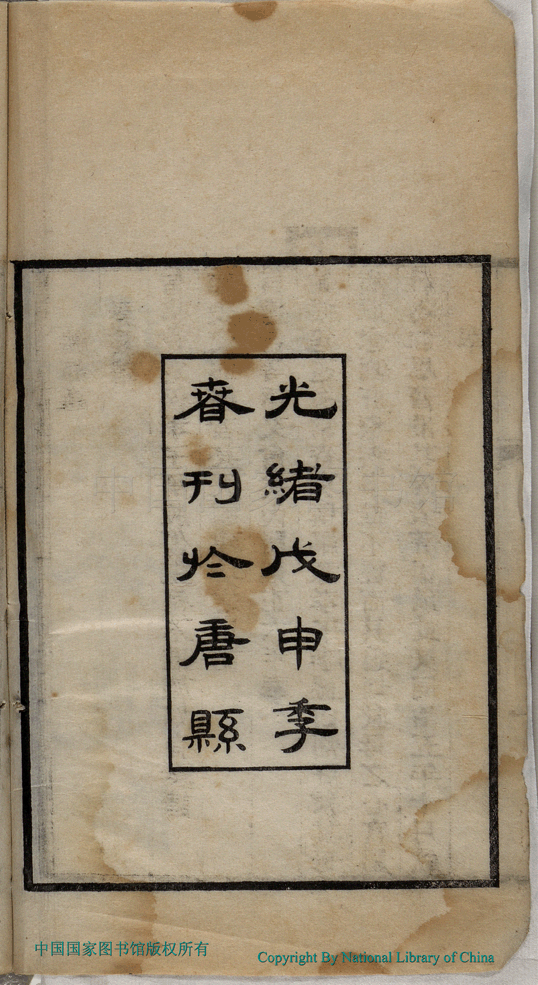 光緒戊申季
春刊於唐縣
中国国家图书馆版权所有
Copyright By National Library of China